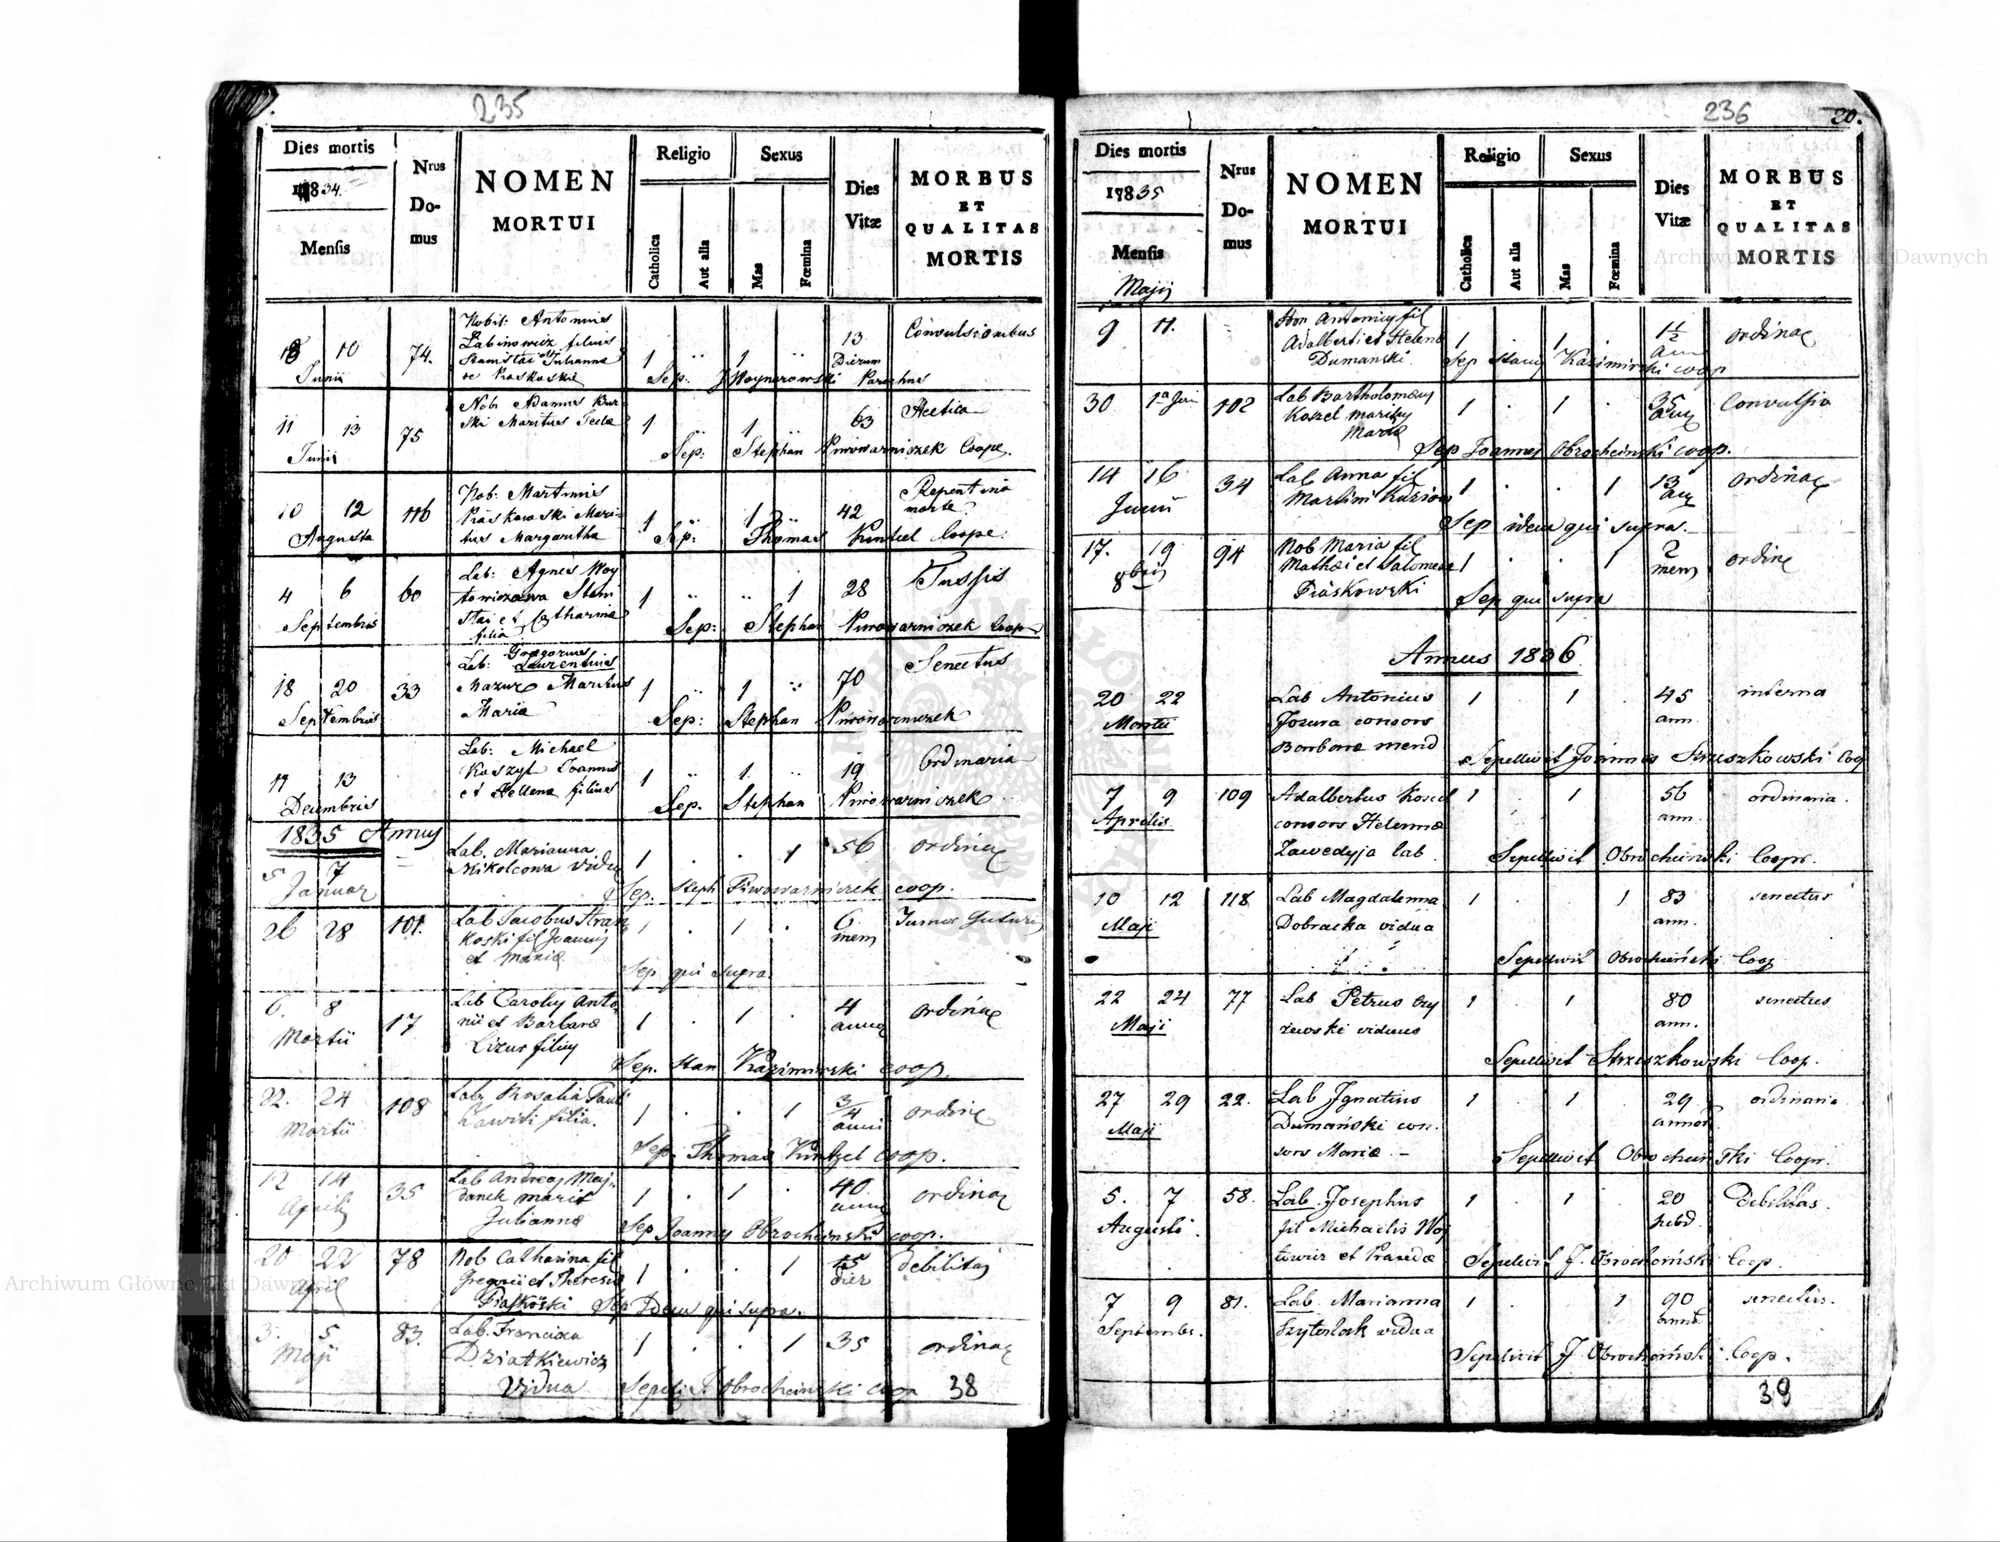 235
Dies mortis
1834.
Mensis
Nrus
Do-
mus
NOMEN
MORTUI
Religio
Catholica
Aut alia
Sexus
Mas
Fœmina
Dies
Vitæ
MORBUS
ET
QUALITAS
MORTIS
10 74. Nobil: Antonius 13 Convulsionibus
Labinowicz filius Dierum
Stanislai et Julianna 1 " 1 "
Junii de Piaskoskie Sep: Woynarowski Parochus
11 13 75 Nob: Adamus Bur- 63 Hectica
ski Maritus Teclæ 1 1
Junii Sep: Stephan Piwowarniczek Coope.
10 12 116 Nob: Martinus 42 Repentina
Piaskowski Mari- 1 " 1 " morte
Augusta tus Margaritha Sep: Thomas Kintzel Coope.
4 6 60 Lab: Agnes Woy 28 Tussis
towiczowa Stani 1 " " 1
Septembris slai et Catharinæ Sep: Stephan Piwowarniczek Coop
filia
Gregorius
18 20 33 Lab: Laurentius 70 Senectus
Mazur Maritus 1 " 1 "
Septembris Mariæ Sep: Stephan Piwowarniczek
11 13 Lab: Michael 19 Ordinaria
Koszyl Joannis 1 " 1 "
Decembris et Hellena filius Sep. Stephan Piwowarniczek
1835 Annus
5 7 Lab. Marianna 1 . . 1 56 ordinaæ
Januar Nikolcowa vidua Sep. Steph Piwowarniczek coop.
26 28 101. Lab Jacobus 1 . 1 . 6 Tumor Guturi
koski fil Joannis mens
et Mariæ Sep qui supra
6. 8 17 Lab Carolus Anto 1 . 1 . 4 ordinaæ
Martii nii et Barbaræ annor
Lizur filius Sep. Stan Kazimirski coop.
22. 24 108 Lab. Rosalia Pauli 1 . . 1 3/4 ordinæ
Martii Zawidi filia. anni
Sep. Thomas Kintzel coop.
12 14 35 Lab Andreas Maj- 1 . 1 . 40 ordinaæ
Aprilis danek marit annor
Juliannæ Sep Joannes Obrocheinski coop.
20 22 78 Nob Catharina fil 1 . . 1 15 debilitas
April Gregorii et Theresiæ dier
Piaskoski Sep Idem qui supra.
3. 5 83. Lab. Francisca 1 . . 1 35 ordinaæ
Maji Dziatkiewicz
vidua Sepeli J. Obrocheinski coop
38
236
20.
Dies mortis
17835
Mensis
Maji
Nrus
Do-
mus
NOMEN
MORTUI
Religio
Catholica
Aut alia
Sexus
Mas
Fœmina
Dies
Vitæ
MORBUS
ET
QUALITAS
MORTIS
9 11. Antonius fil 1 . 1 . 1½ ordinaæ
Adalberti et Helenæ ann
Dumanski. Sep Stan Kazimirski coop
30 1a Juni 102 Lab Bartholomæus 1 . 1 . 35 Convulsia
Koszel maritus annor
Martæ Sep Joannes Obrocheinski coop.
14 16 34 Lab Anna fil 1 . . 1 13 ordinaæ
Junii Martini an
Sep idem qui supra.
17. 19 94 Nob Maria fil 1 . . 1 2 ordinæ
8bris Mathæi et Salomeæ mens
Piaskowski Sep qui supra
Annus 1836
20 22 Lab Antonius 1 1 . 45 interna
Martii Jozura consors ann.
Barbaræ mend Sepelivit Joannes Strzeszkowski Coop
7 9 109 Adalbertus Koszel 1 . 1 56 ordinaria.
Aprilis consors Helennæ ann.
Zawedyja lab. Sepellivit Obrocheinski Coopr.
10 12 118 Lab Magdalenna 1 . . 1 83 senectus
Maji Dobracka vidua ann.
Sepellivit Obrocheiński Coop
22 24 77 Lab Petrus Czy 1 . 1 80 senectus
Maji zewski viduus ann.
Sepellivit Strzeszkowski Coop.
27 29 22. Lab Ignatius 1 . 1 . 29 ordinaria
Maji Dumański con. annor.
sors Mariæ.- Sepellivit Obrocheinski Coopr.
5. 7 58. Lab. Josephus 1 . 1 . 20 Debilitas.
Augusti. fil Michaelis Woj hebd.
towicz et Praxedæ Sepelivit J. Obrocheiński Coop.
7 9 81. Lab. Marianna 1 . 1 90 senectus.
Septembr. vidua
Sepelivit J Obrocheiński Coop.
39
Archiwum Główne Akt Dawnych
Archiwum Główne Akt Dawnych